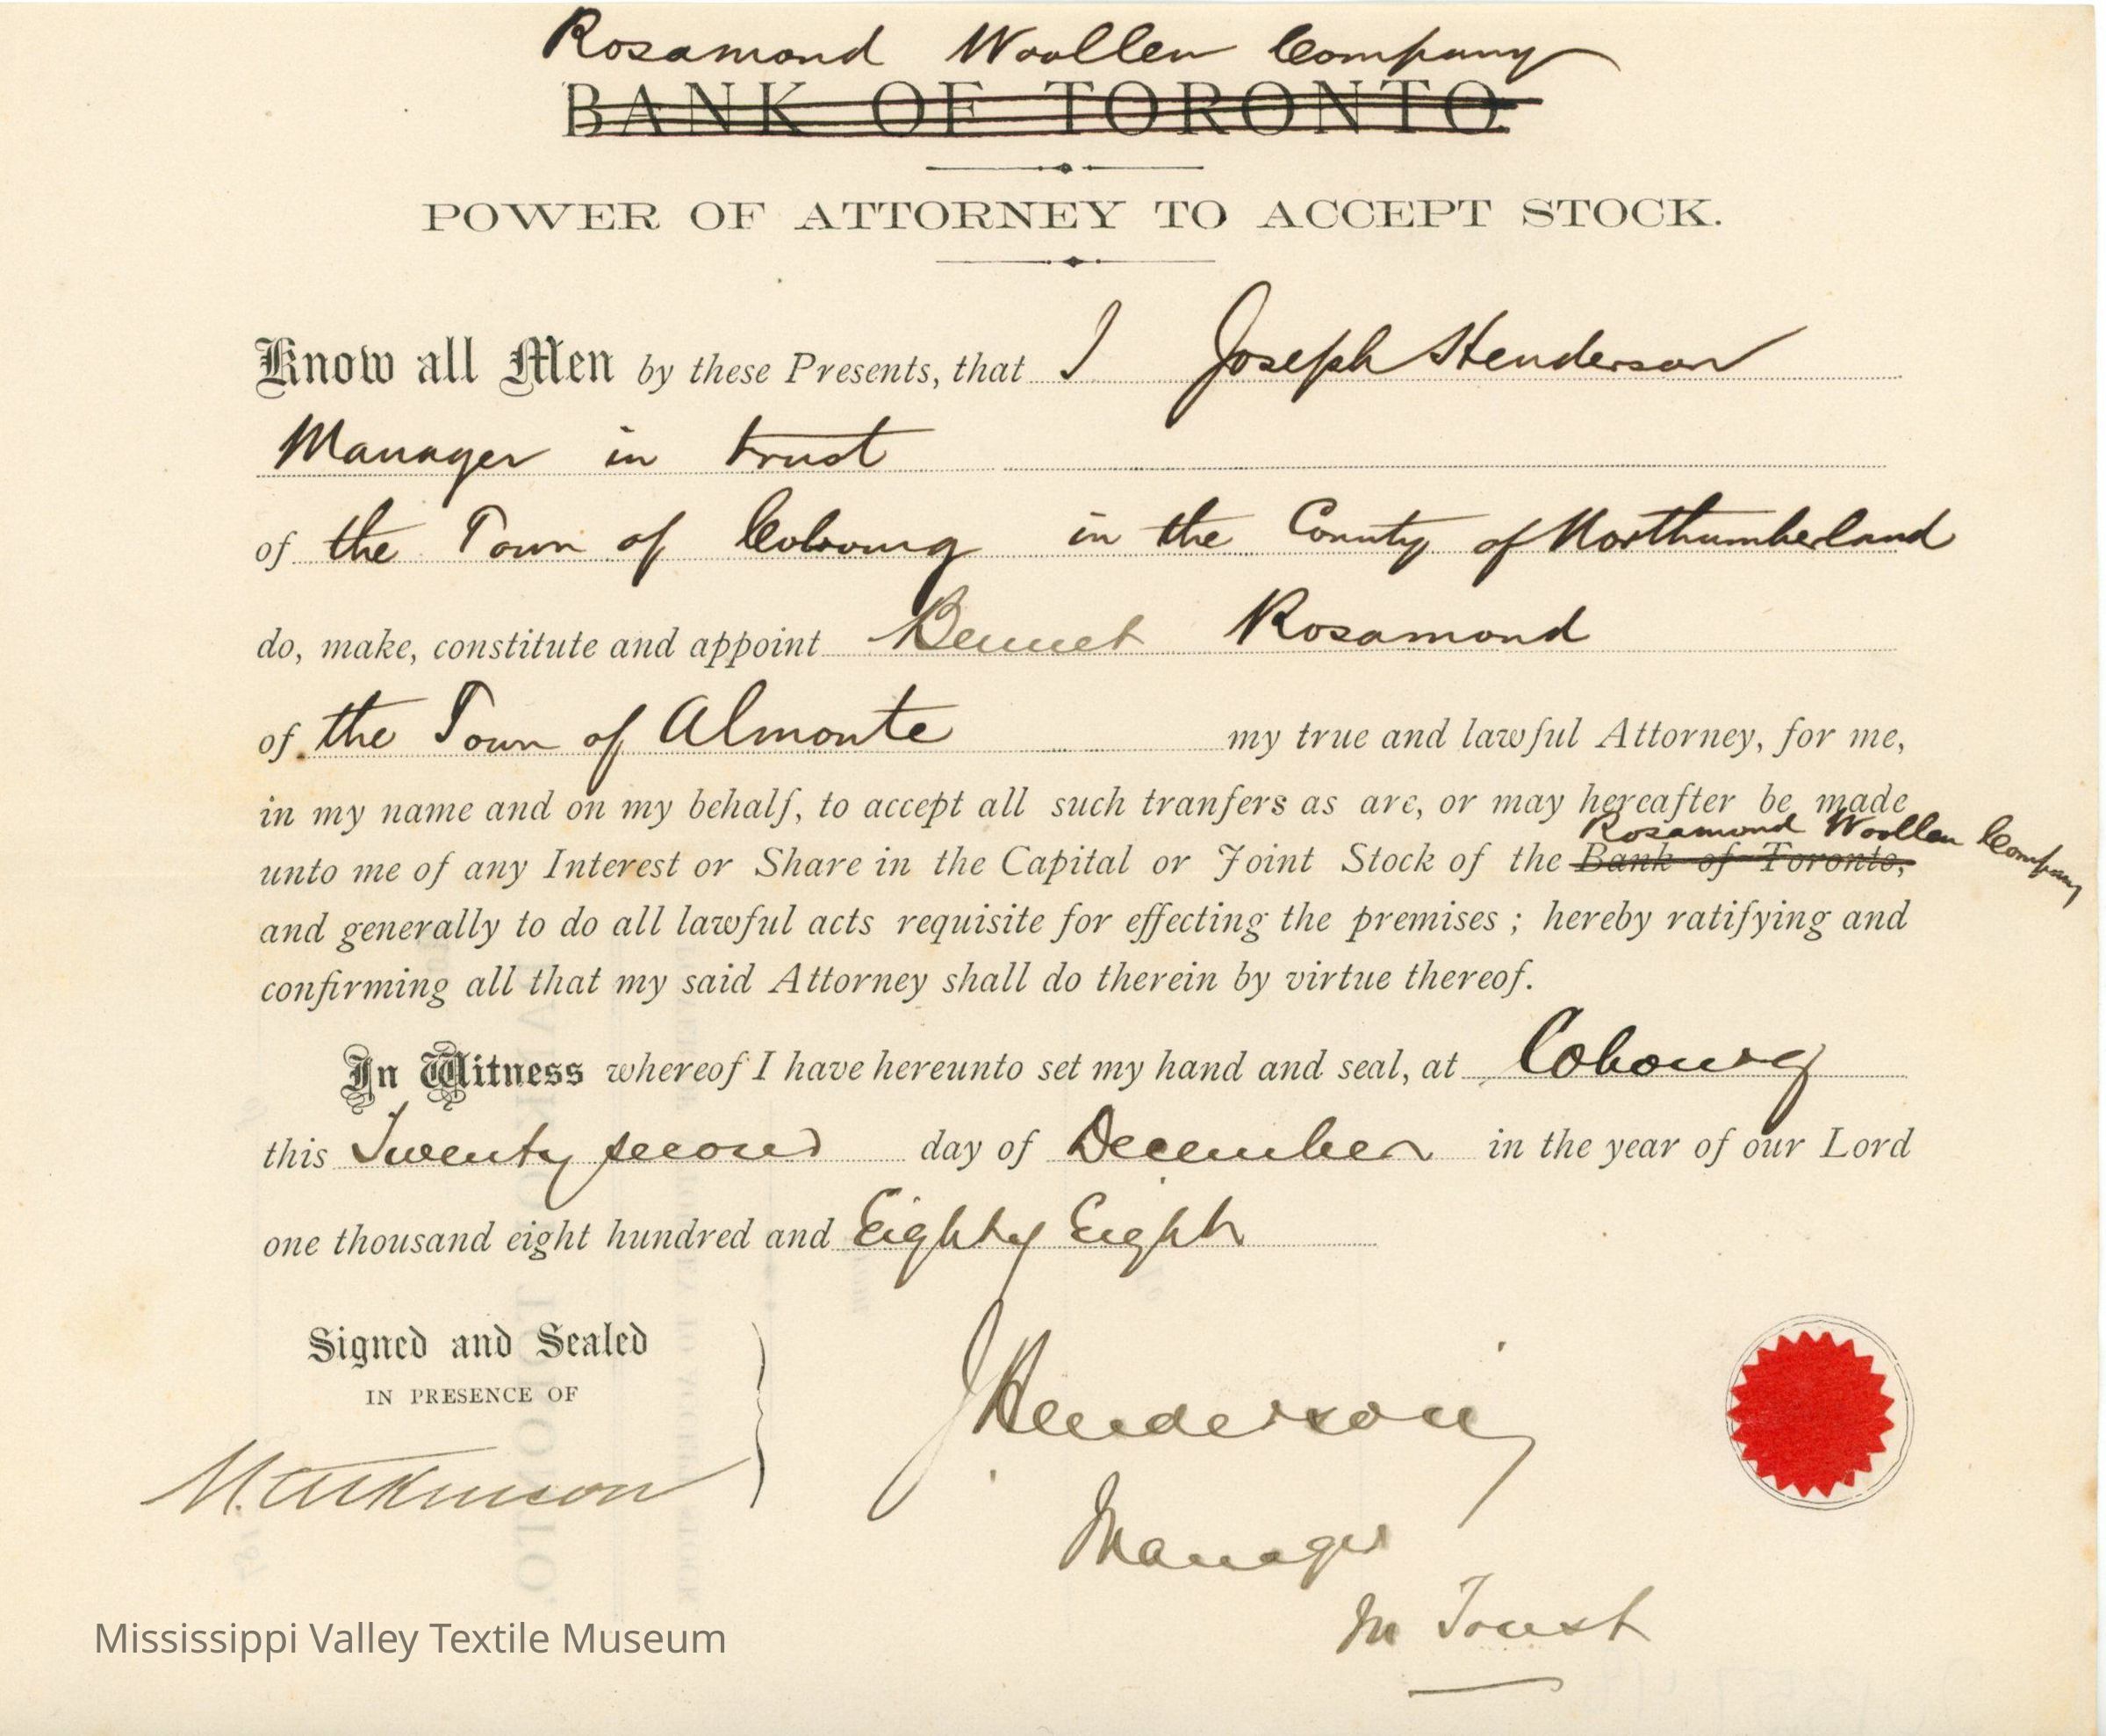 Rosamond Woollen Company
BANK OF TORONTO.
POWER OF ATTORNEY TO ACCEPT STOCK.
Know all Men by these Presents, that I Joseph Henderson
Manager in trust
of the Town of Cobourg in the County of Northumberland
do, make, constitute and appoint Bennet Rosamond
of the Town of Almonte my true and lawful Attorney, for me,
in my name and on my behalf, to accept all such tranfers as are, or may hereafter be made
Rosamond Woollen Company
unto me of any Interest or Share in the Capital or Joint Stock of the Bank of Toronto,
and generally to do all lawful acts requisite for effecting the premises ; hereby ratifying and
confirming all that my said Attorney shall do therein by virtue thereof.
In Witness whereof I have hereunto set my hand and seal, at Cobourg
this Twenty second day of December in the year of our Lord
one thousand eight hundred and Eighty Eight
Signed and Sealed
IN PRESENCE OF
M. Atkinson
J Henderson
Manager
In Trust
Mississippi Valley Textile Museum